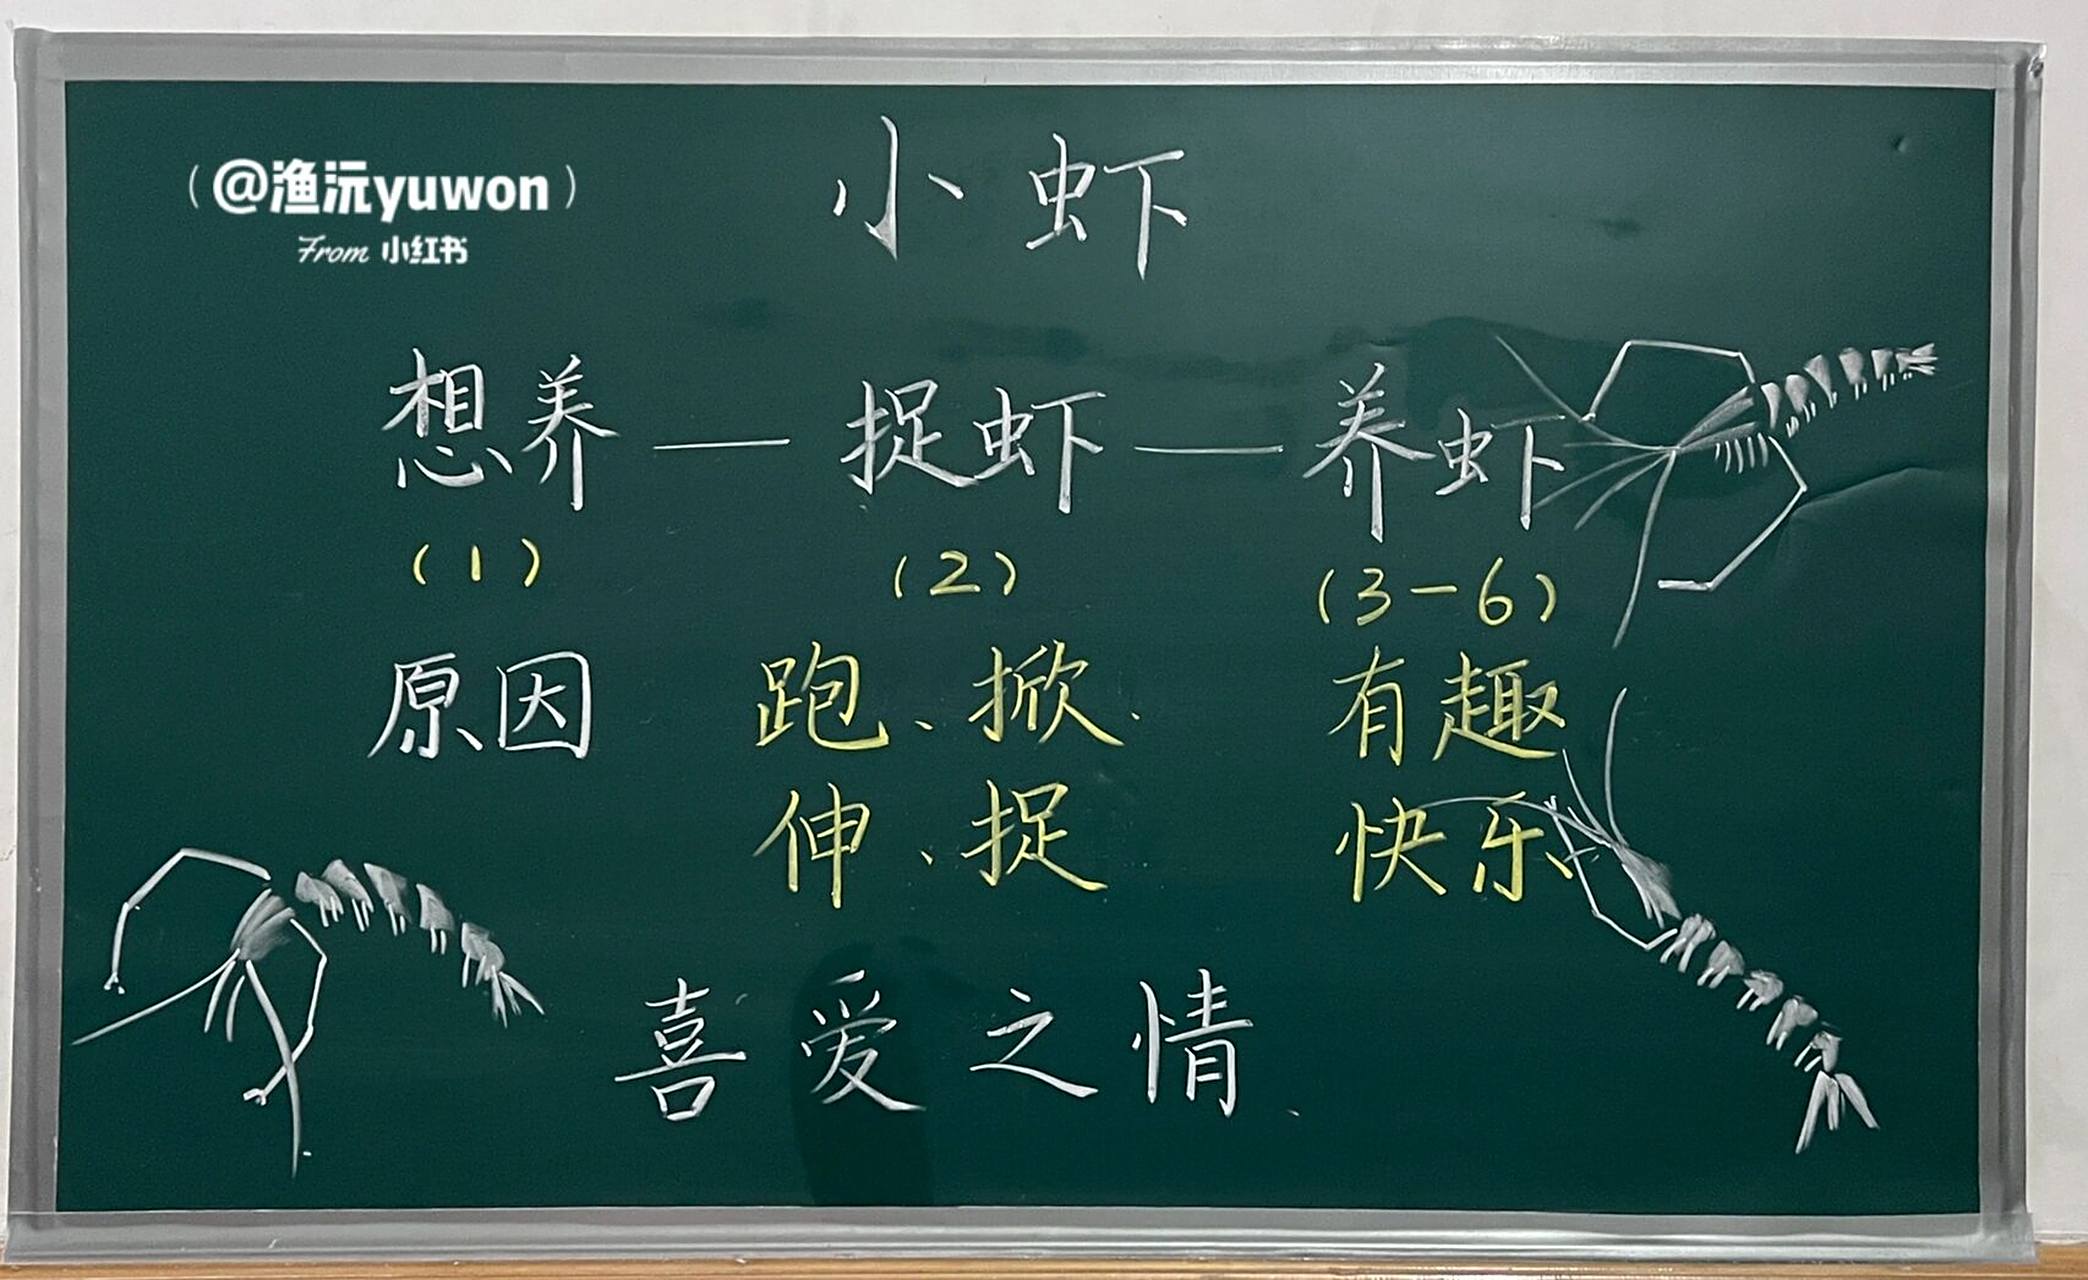 （@渔沅yuwon）
From 小红书
小虾
想养——捉虾——养虾
(1) (2) (3-6)
原因 跑、掀、 有趣
伸、捉 快乐
喜爱之情